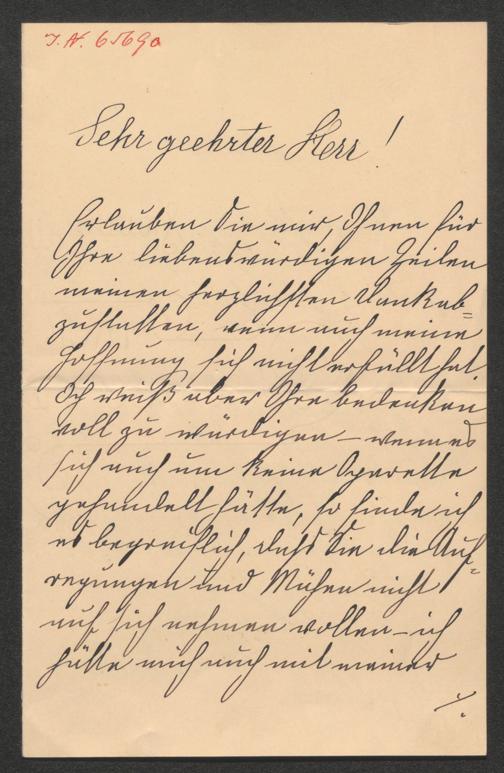 J.N. 65690
Sehr geehrter Herr!
Erlauben Sie mir, Ihnen für
Ihre liebenswürdigen Zeilen
meinen herzlichsten Dank ab=
zustatten, wenn auch meine
Hoffnung sich nicht erfüllt hat.
Ich weiß aber Ihre bedenken
voll zu würdigen – wenn es
sich auch um keine Operette
gehandelt hätte, so finde ich
es begreiflich, daß Sie die Auf=
regungen und Mühen nicht
auf sich nehmen wollen – ich
hätte mich auch mit meiner
./.